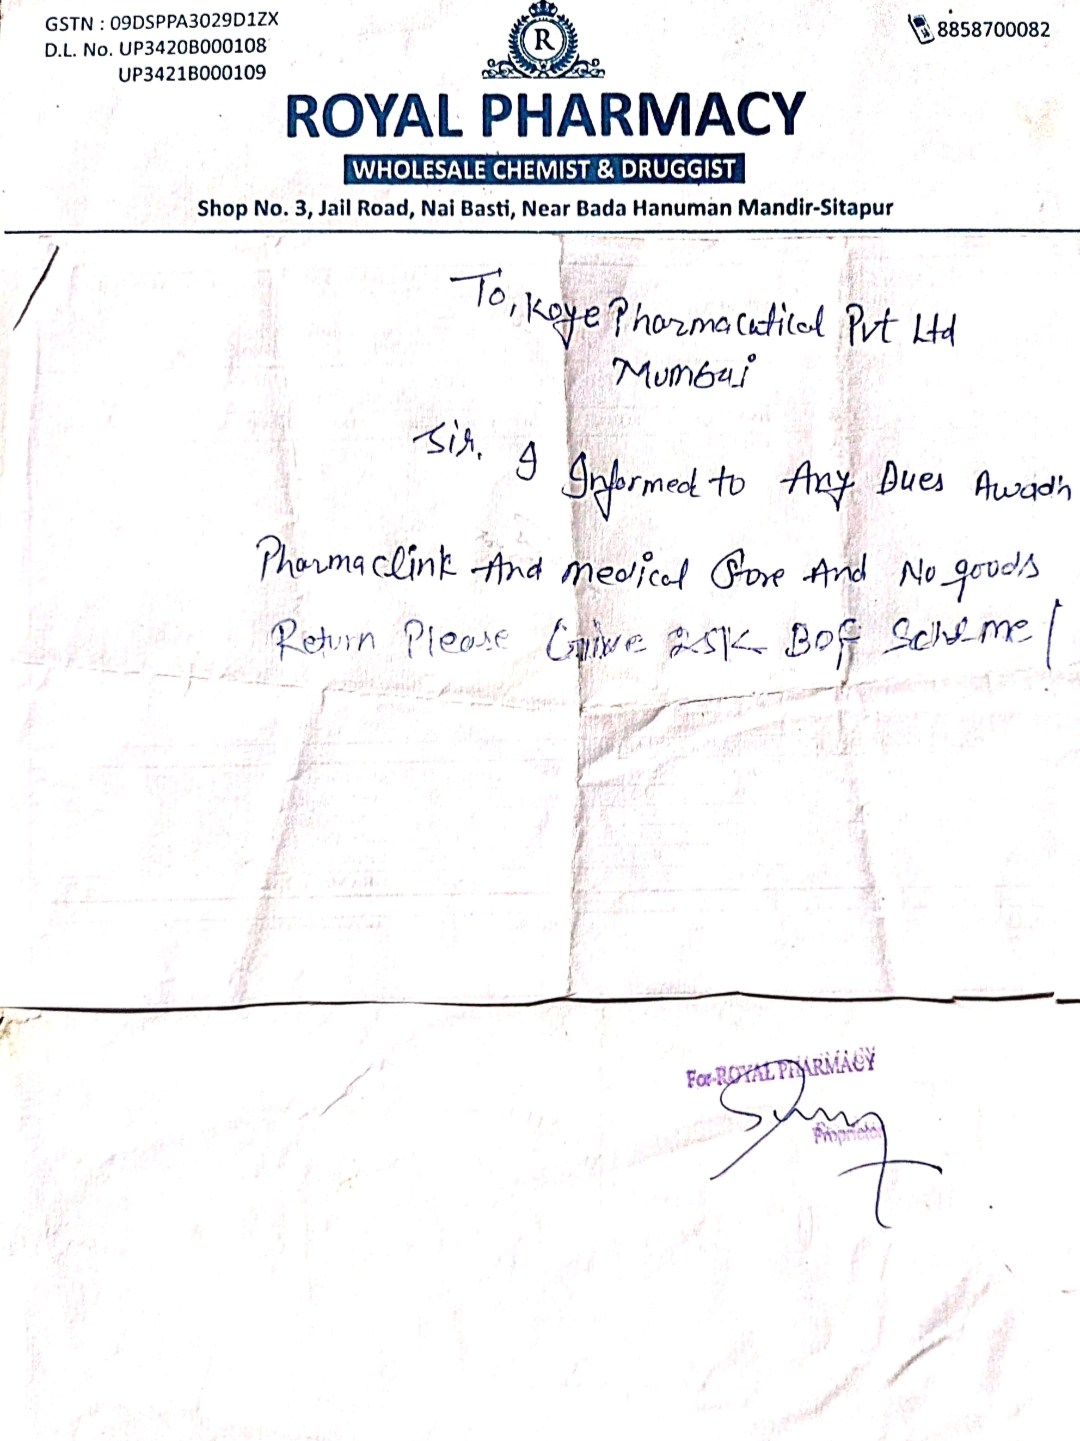 GSTN : 09DSPPA3029D1ZX
D.L. No. UP3420B000108
UP3421B000109
R
8858700082
ROYAL PHARMACY
WHOLESALE CHEMIST & DRUGGIST
Shop No. 3, Jail Road, Nai Basti, Near Bada Hanuman Mandir-Sitapur
To, Koye Pharmacutical Pvt Ltd
Mumbai
Sir. I Informed to Any Dues Awadh
Pharma clink And medical Store And No goods
Return Please Give 25K BOF Scheme
For-ROYAL PHARMACY
Proprietor